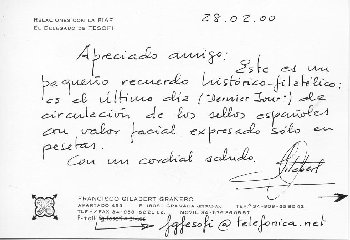 RELACIONES CON LA FIAF
EL DELEGADO DE TESOFI
28.02.00
Apreciado amigo:
Este es un
pequeño recuerdo histórico-filatélico:
es el último día (Dernier Jour) de
circulación de los sellos españoles
con valor facial expresado sólo en
pesetas.
Con un cordial saludo,
Gilabert
FRANCISCO GILABERT GRANERO
APARTADO
GRANADA
E-mail
fgfesofi@telefonica.net